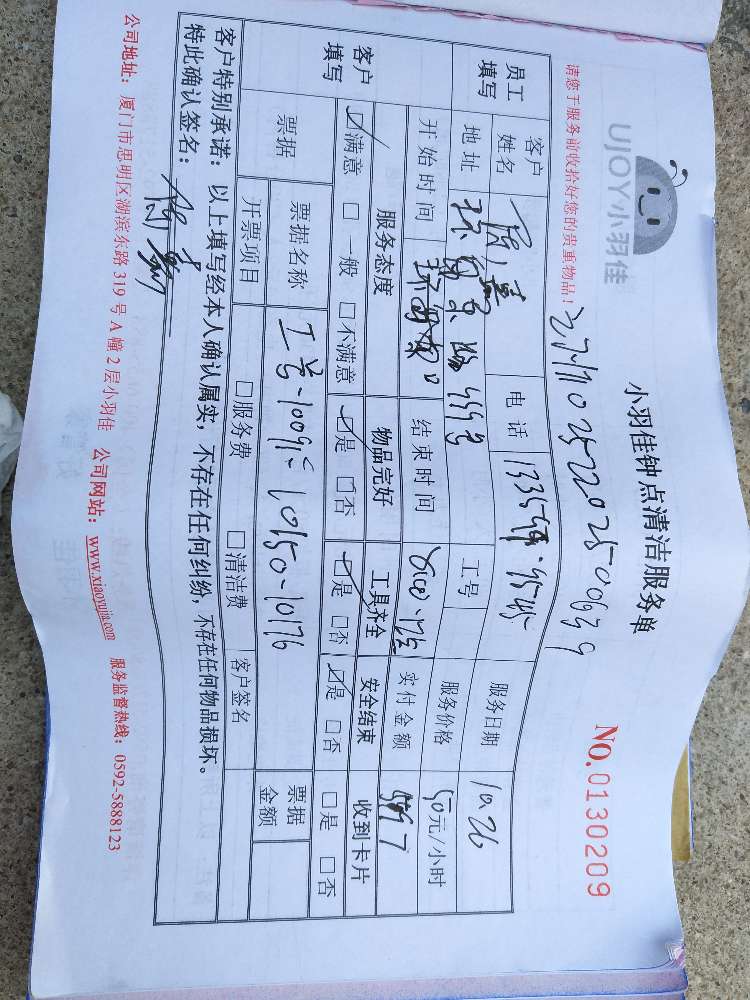 UJOY小羽佳
小羽佳钟点清洁服务单
NO.0130209
请您于服务前收拾好您的贵重物品!
员工填写 客户姓名 电话 服务日期 10.26
地址 工号 服务价格 50元/小时
开始时间 结束时间 实付金额
客户填写 服务态度 物品完好 工具齐全 安全结束 收到卡片
☑满意 □一般 □不满意 ☑是 □否 ☑是 □否 ☑是 □否 □是 □否
票据 票据名称 工号-10091-10150-10176 票据金额
开票项目 □服务费 □清洁费 客户签名
客户特别承诺:以上填写经本人确认属实,不存在任何纠纷,不存在任何物品损坏。
特此确认签名:
公司地址:厦门市思明区湖滨东路319号A幢2层小羽佳 公司网站:www.xiaoyujia.com 服务监督热线:0592-5888123